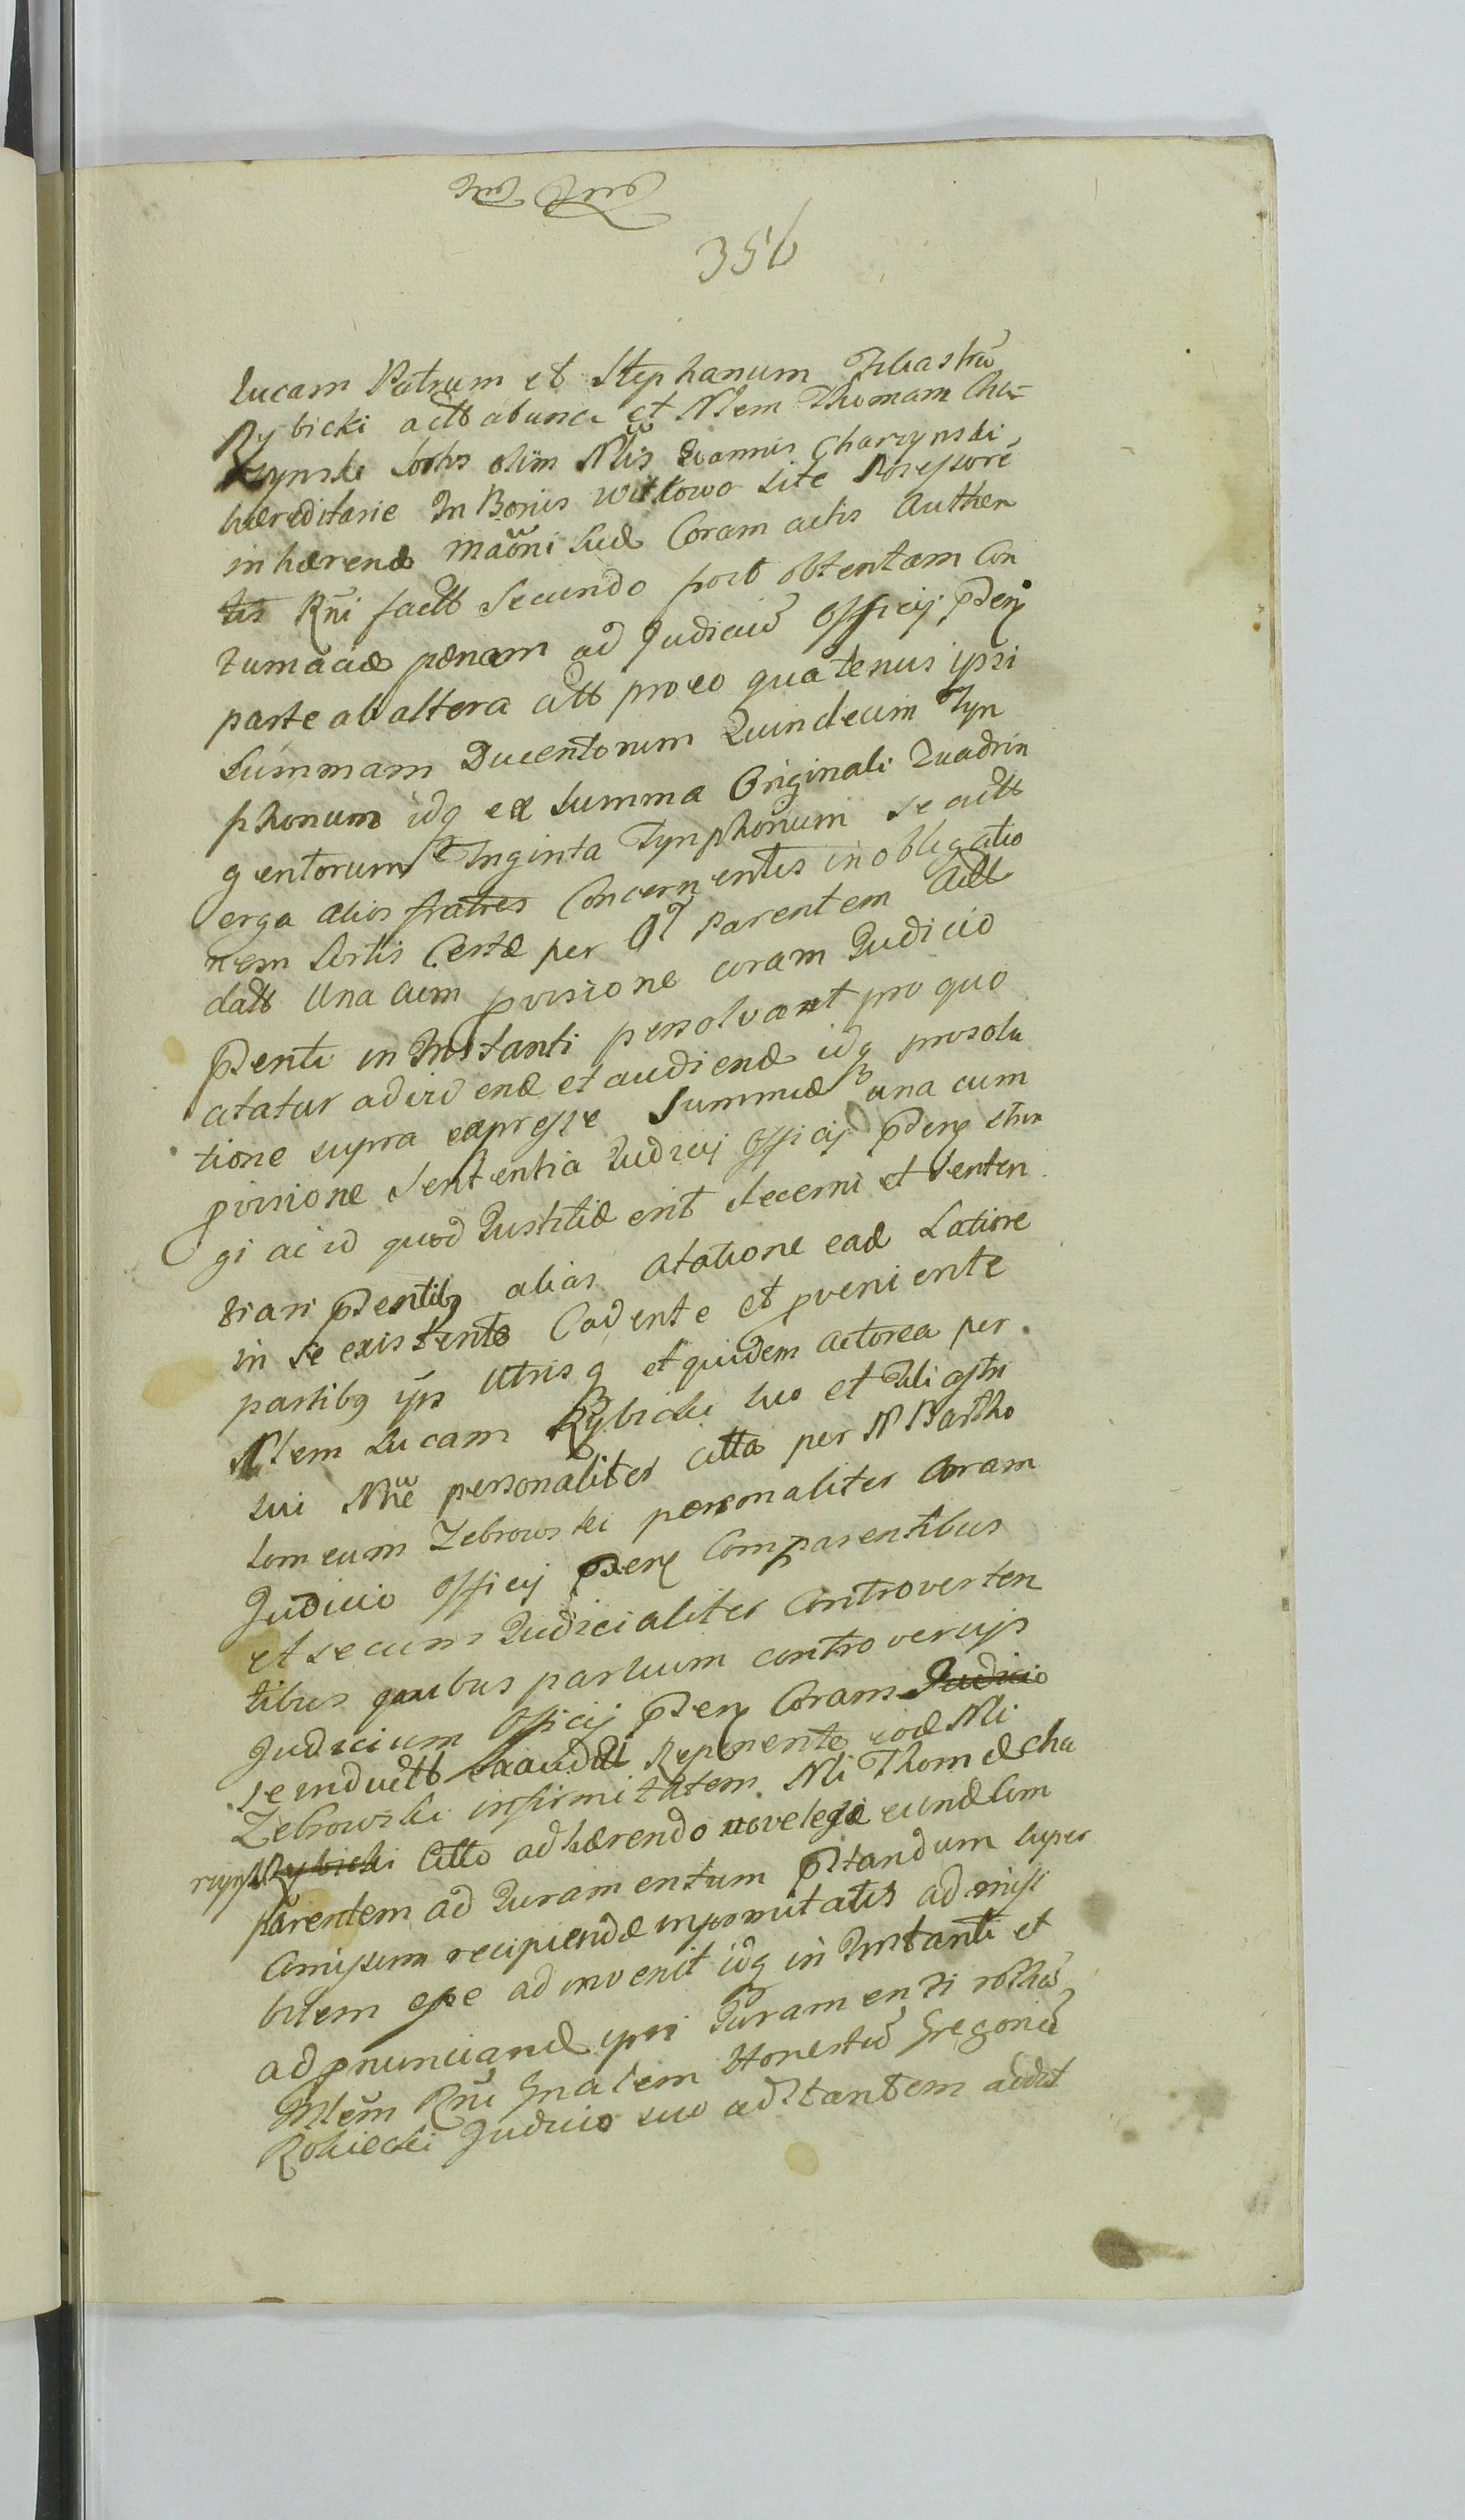 356
Lucam Patruum et Stephanum Filiastrũ
Rybicki actt abunce et Nlem Thomam Cha-
rzynski Sortis olim Nlis Joannis Charzynski
hæreditarie In Bonis Witkowo Sitæ Possessorẽ
inhærend Mãoni Suæ Coram actis Authen
tis Rñi factt Secundo post obtentam Con
tumaciæ pænam ad Judiciũ Officij
parte ab altera citt pro eo quatenus ipsi
Summam Ducentorum Quindecim Tyn
phonum idq ex Summa Originali Quadrin
gentorum Triginta Tynphonum se actt
erga alios fratres Concernentis in obligatio
nem Sortis Certæ per Parentem Actt
datt Una cum pvisione coram Judicio
pdenti in Instanti persolvant pro quo
citatur ad vid end et audiend idq prosolu
tione supra expresse Summæ una cum
pvisione Sententia Judicij Officij stin
gi ac id quod Justitiæ erit decerni et Senten
tiari alias Citatione ead Latiore
in se existente Cadente et pveniente
partibq ijs Utrisq et quidem actorea per
Nlem Lucam Rybicki suo et Filiastri
sui Nñe personaliter Citta per N Bartho
lomeum Zebrowski personaliter Coram
Judicio Officij Comparentibus
et secum Judicialiter Controverten
tibus quibus partium controversijs
Judicium Officij Coram Judicio
se inductt exauditt Reponente eod Nli
Zebrowski infirmitatem Nli Thomæ Cha
rzynski Rybicki Citto adhærendo novelegæ eund Com
parentem ad Juramentum Pstandum super
Comissum recipiendæ infirmitatis admissi
bilem esse adinvenit idq in Instanti et
ad pnunciand ipsi Juramenti rothũ
Mlem Rñi Gnalem Honestũ Gregoriũ
Rokicki Judicio suo adstantem addit